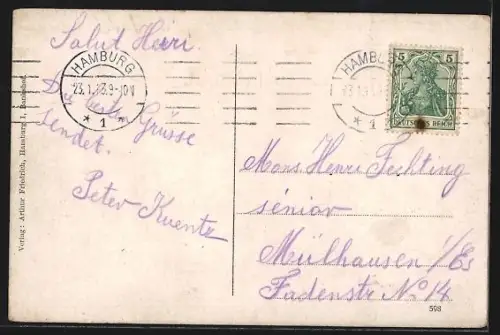 Salut Henri.
HAMBURG
23.1.13.9-10V
* 1 *
Die besten Grüsse
sendet.
Peter Kuentz
Verlag: Arthur Friedrich, Hamburg 1,
HAMBU
* 1
5 5
DEUTSCHES REICH
Mons Henri Fechting
sénior
Mülhausen i/Els
Fadenstr No 14
598